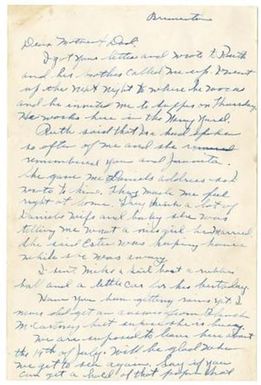 Bremerton
Dear Mother & Dad.
I got your letter and wrote to Ruth
and her mother called me up. I went
up the next night to where he was
and he invited me to supper on Thursday.
He works here in the Navy Yard.
Ruth said that he had spoken
so often of me and she
remembered you and Juanita.
She gave me Daniels address and I
wrote to him. They made me feel
right at home. They think a lot of
Daniels wife and baby she was
telling me what a nice girl he married
she said Ester was keeping house
while she was away.
I sent a little boat a rubber
ball and a little car for his birthday.
Have you been getting rains yet I
never did get an answer from
McCartney but suppose he is busy.
We are supposed to leave here about
the 19th of July. Will be glad when
we get to sea again. Say if you
can get a hold of that paper that